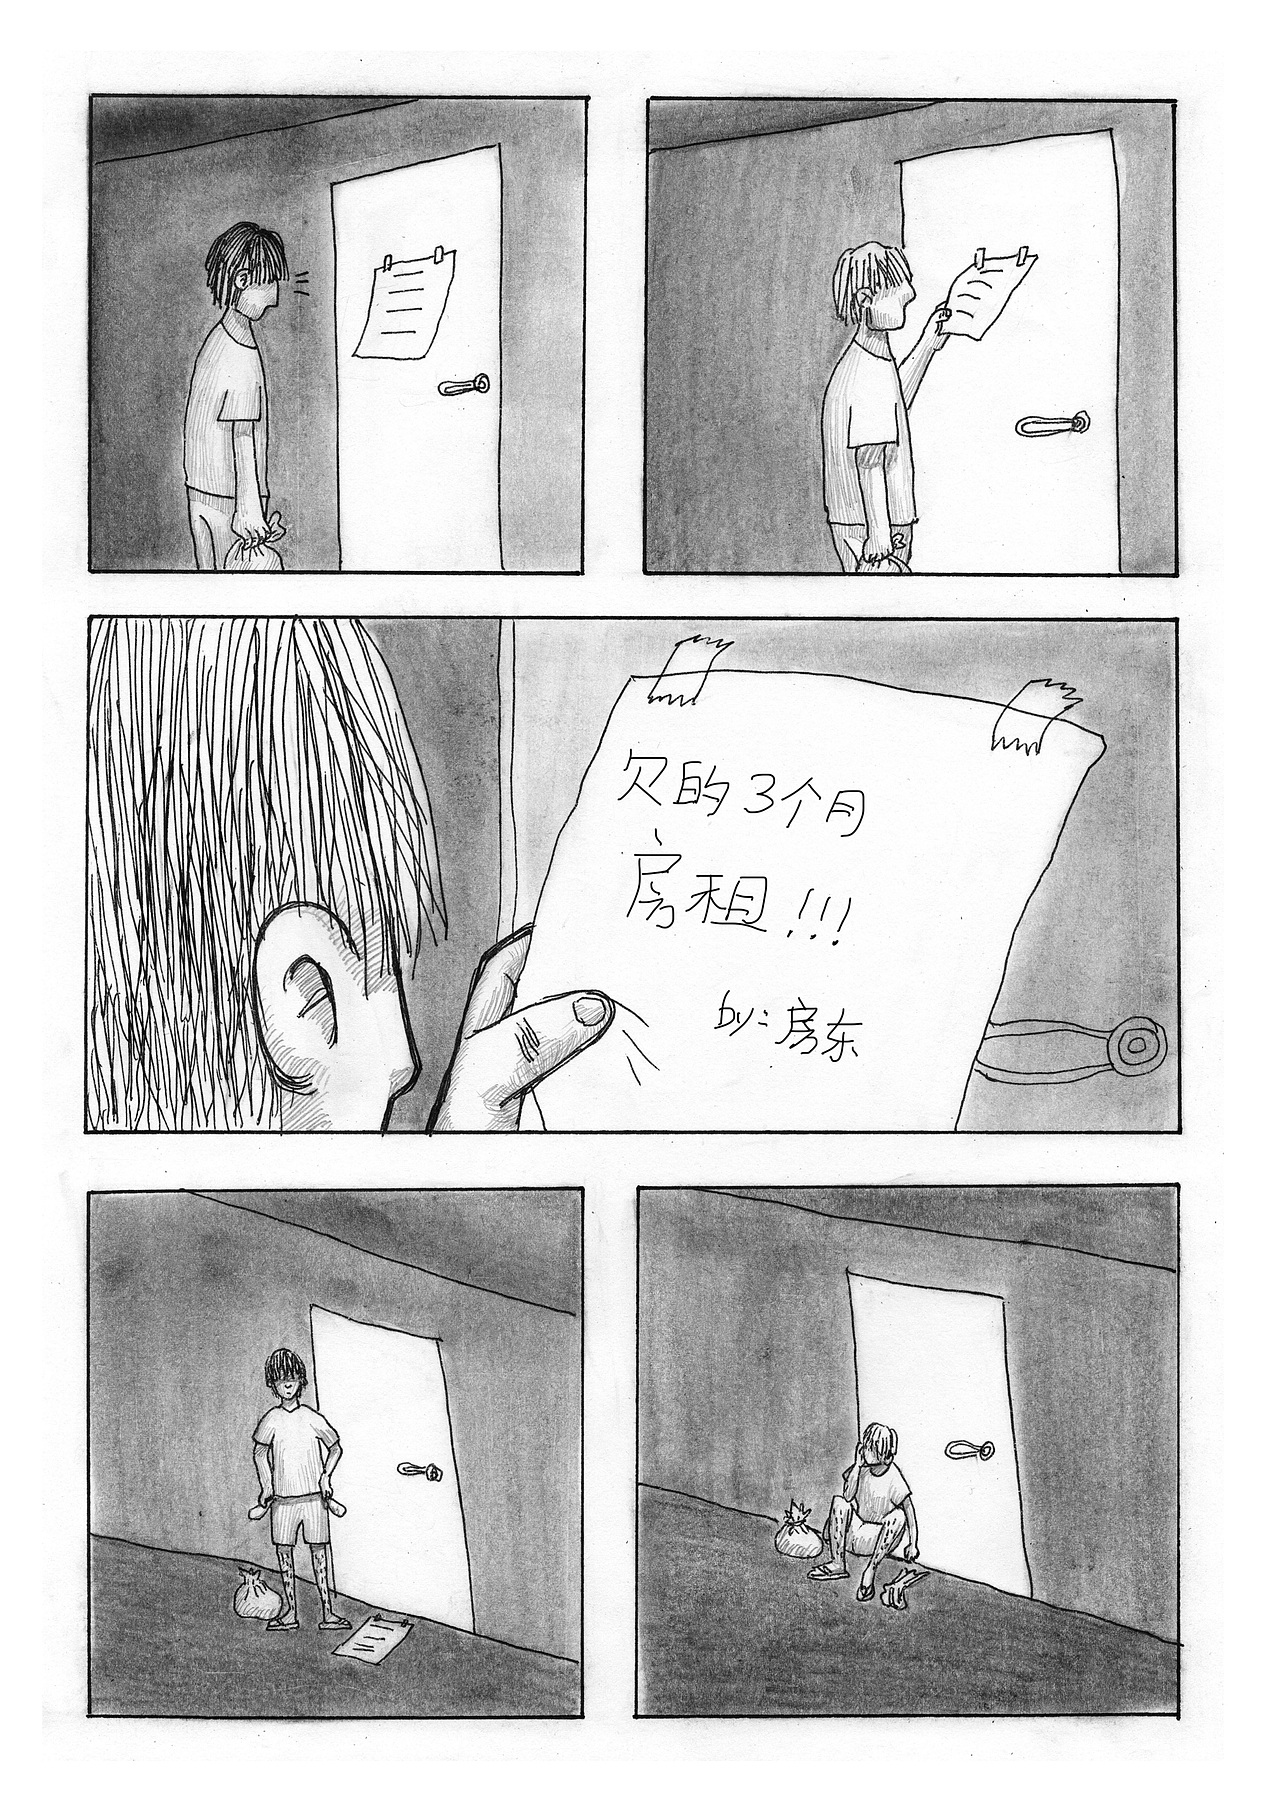 欠的3个月
房租!!!
by:房东